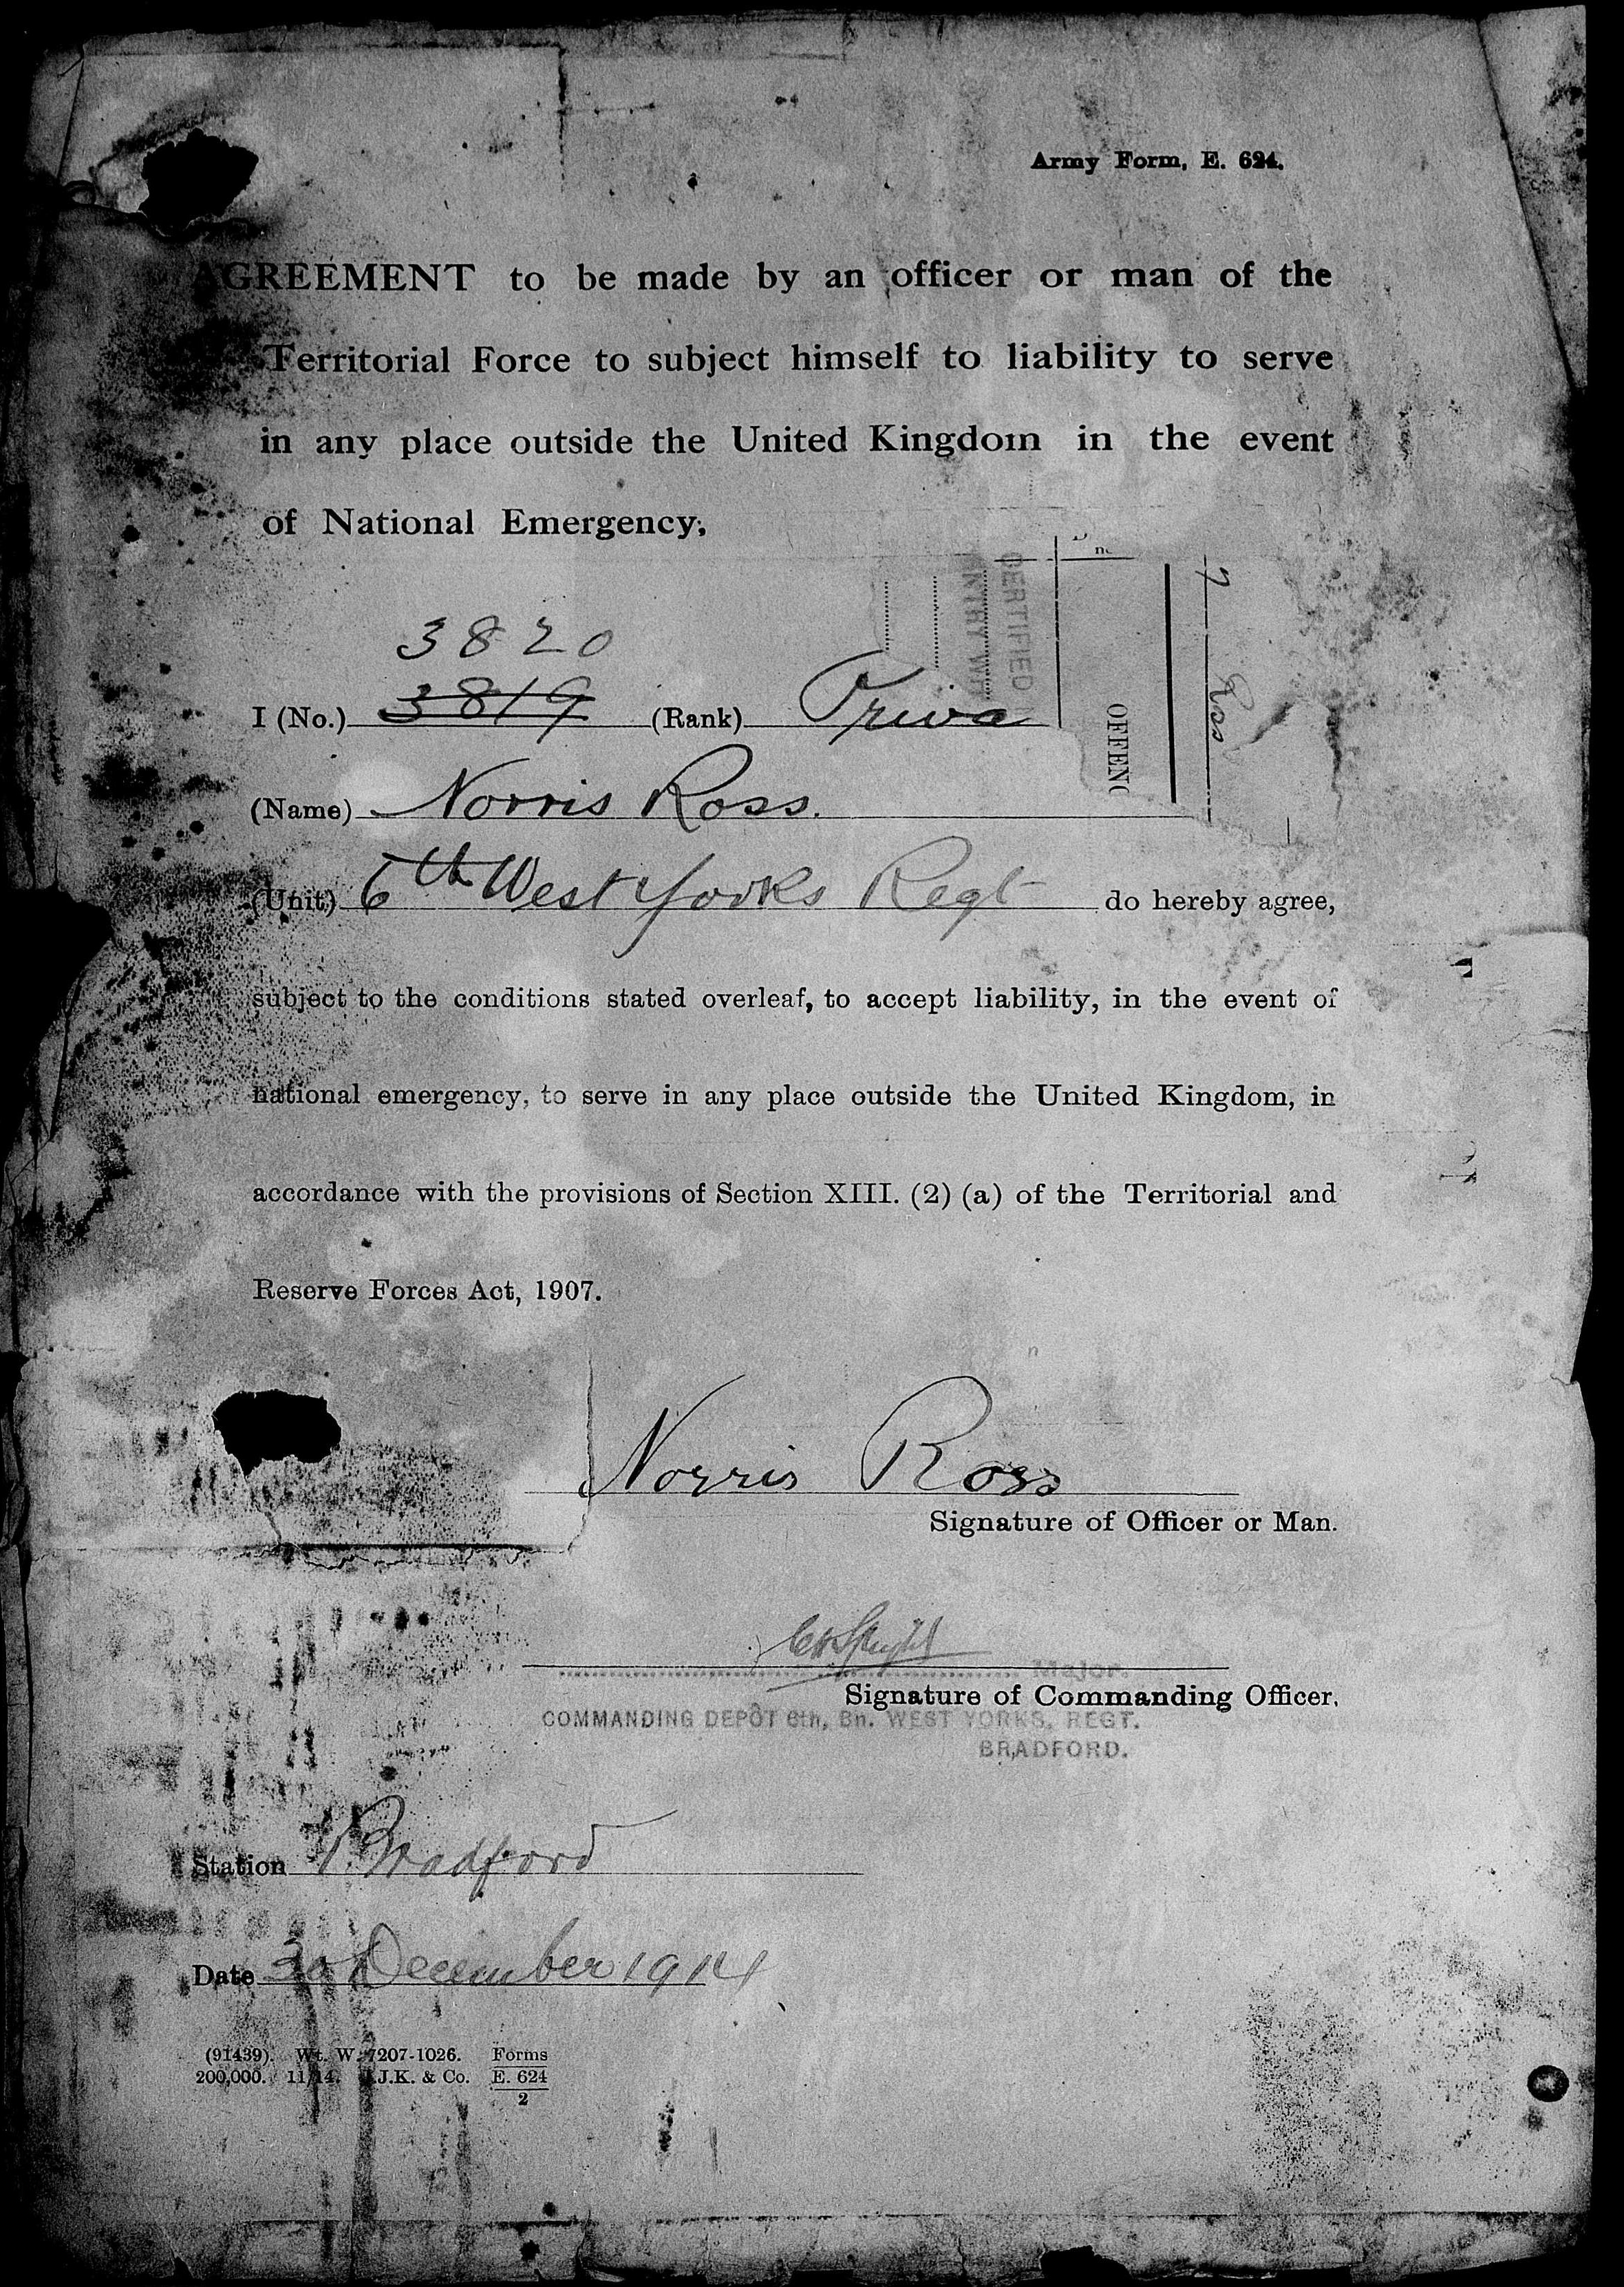 Army Form, E. 624.
AGREEMENT to be made by an officer or man of the
Territorial Force to subject himself to liability to serve
in any place outside the United Kingdom in the event
of National Emergency,
CERTIFIED
ENTRY
OFFENC
7
Ross
3820
I (No.) 3819 (Rank) Priva
(Name) Norris Ross.
(Unit) 6th West Yorks Regt do hereby agree,
subject to the conditions stated overleaf, to accept liability, in the event of
national emergency, to serve in any place outside the United Kingdom, in
accordance with the provisions of Section XIII. (2) (a) of the Territorial and
Reserve Forces Act, 1907.
Norris Ross
Signature of Officer or Man.
Major.
Signature of Commanding Officer.
COMMANDING DEPÔT 6th, Bn. WEST YORKS, REGT.
BRADFORD.
Station Bradford
Date 30 December 1914
(91439). Wt. W. 7207-1026. Forms
200,000. 11/14. J.K. & Co. E. 624
2